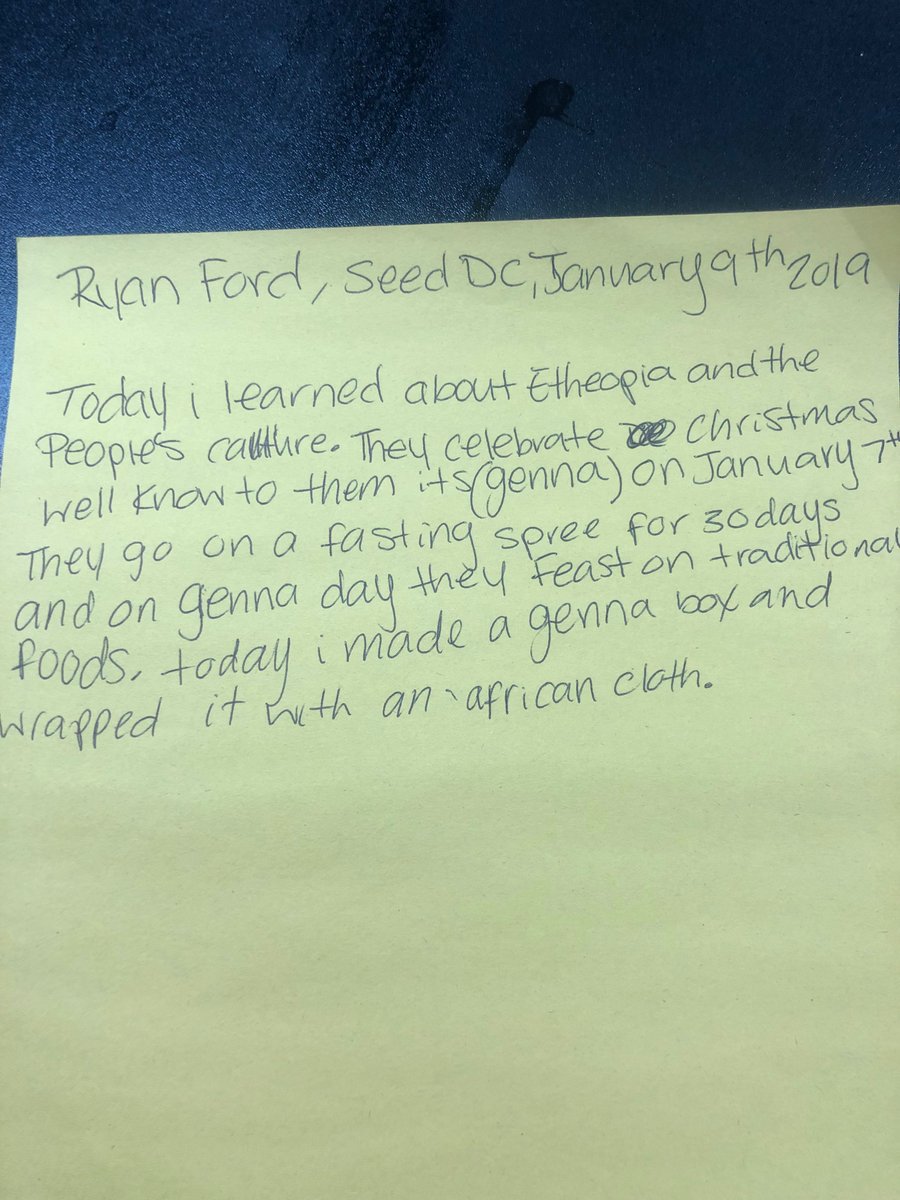 Ryan Ford, Seed DC, January 9th 2019
Today i learned about Etheopia and the
People's culture. They celebrate Christmas
well know to them its (genna) on January 7th
They go on a fasting spree for 30 days
and on genna day they feast on traditional
foods. today i made a genna box and
wrapped it with an african cloth.